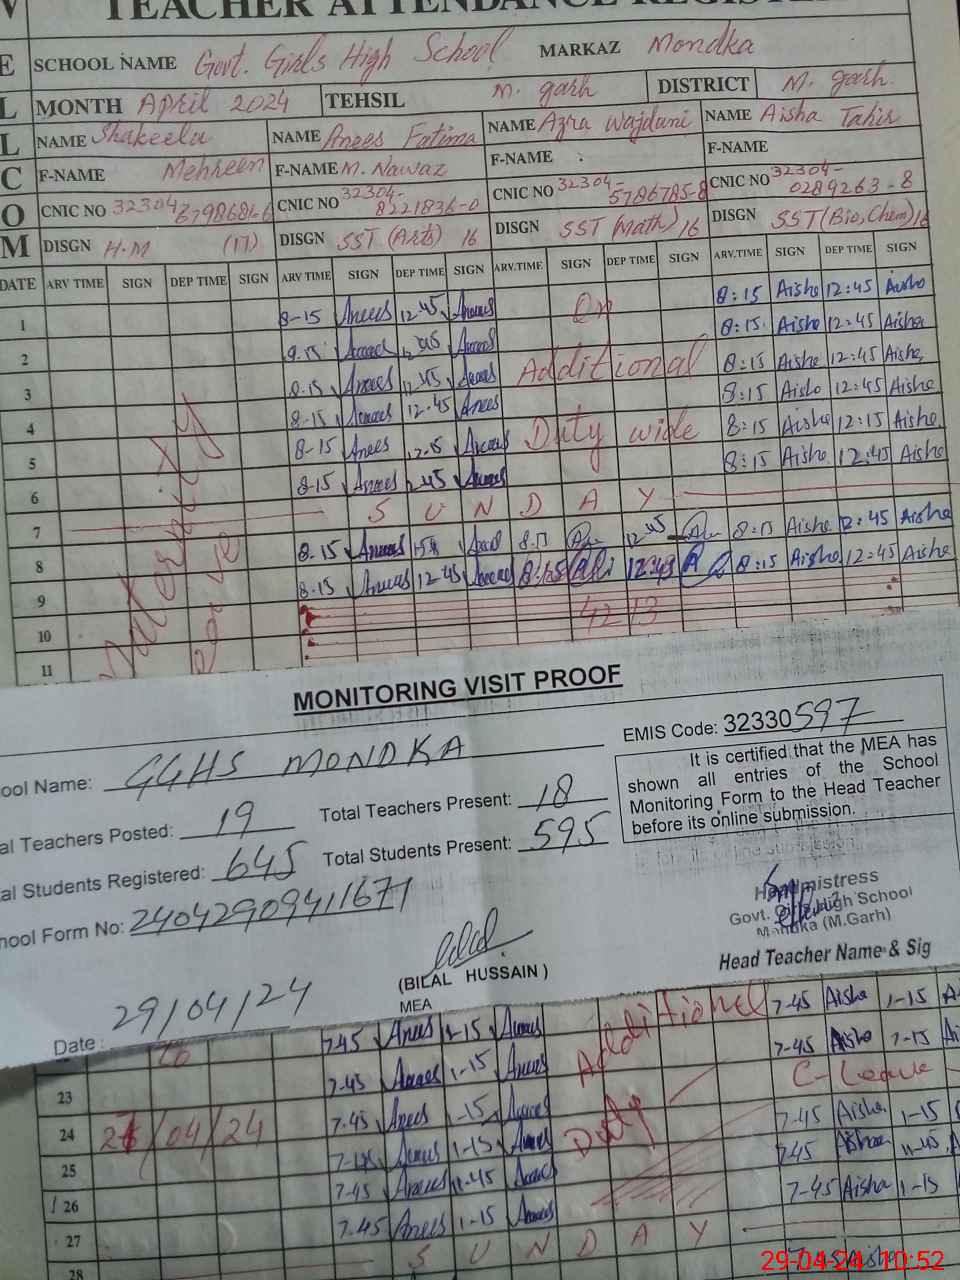 TEACHER ATTENDANCE REGISTER
SCHOOL NAME Govt. Girls High School MARKAZ Mondka
MONTH April 2024 TEHSIL M. garh DISTRICT M. garh
NAME Shakeela NAME Anees Fatima NAME Azra Wajdani NAME Aisha Tahir
F-NAME Mehreen F-NAME M. Nawaz F-NAME F-NAME
CNIC NO 32304- CNIC NO 32304-8221836-0 CNIC NO 32304-5786785-8 CNIC NO 32304-0289263-8
DISGN H.M (17) DISGN SST (Arts) 16 DISGN SST (Math) 16 DISGN SST (Bio, Chem) 16
DATE ARV TIME SIGN DEP TIME SIGN ARV TIME SIGN DEP TIME SIGN ARV.TIME SIGN DEP TIME SIGN ARV.TIME SIGN DEP TIME SIGN
1 8-15 Anees 12-45 On 8:15 Aisha 12:45 Aisha
2 8:15 Aisha 12:45 Aisha
3 8-15 Additional 8:15 Aisha 12:45 Aisha
4 8-15 12-45 Anees 8:15 Aisha 12:45 Aisha
5 8-15 Anees Duty wide 8:15 Aisha 12:15 Aisha
6 8-15 Anees 8:15 Aisha 12:45 Aisha
7 S U N D A Y
8 8-15 8:15 Aisha 12:45 Aisha
9 8-15 12-45 8:15 12:45 8:15 Aisha 12:45 Aisha
10
11
Maternity
MONITORING VISIT PROOF
EMIS Code: 32330597
ool Name: GGHS MONDKA
It is certified that the MEA has
shown all entries of the School
Monitoring Form to the Head Teacher
before its online submission.
al Teachers Posted: 19 Total Teachers Present: 18
al Students Registered: 645 Total Students Present: 595
hool Form No: 24042909411671
Headmistress
Govt. Girls High School
Mandka (M.Garh)
Head Teacher Name & Sig
(BILAL HUSSAIN)
MEA
Date: 29/04/24
Additional
7-45 Aisha 1-15
7-45 Anees 1-15 7-45 Aisha 1-15
23 7-45 1-15 C-Leave
24 /04/24 7-45 Anees 1-15 Duty 7-45 Aisha 1-15
25 1-15 7-45 11-45
26 7-45 11-45 7-45 Aisha 1-15
27 7-45 Anees 1-15
28 S U N D A Y
7-45 Aisha
29-04-24 10:52